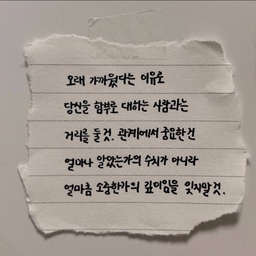 오래 가까웠다는 이유로
당신을 함부로 대하는 사람과는
거리를 둘것. 관계에서 중요한건
얼마나 알았는가의 수치가 아니라
얼마큼 소중한가의 깊이임을 잊지말것.